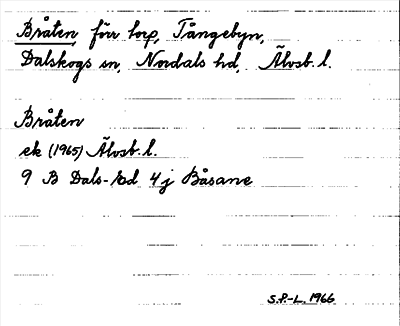 Bråten, förr torp, Tångebyn,
Dalskogs sn, Nordals hd, Älvsb. l.
Bråten
ek (1965) Älvsb. l.
9 B Dals-Ed 4 j Båsane
S.P.-L. 1966